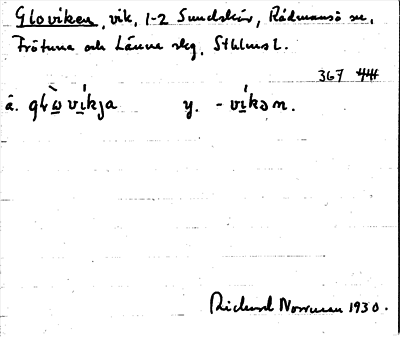 Gloviken, vik, 1-2 Sundskär, Rådmansö sn,
Frötuna och Länna skg, Sthlms l.
367 444
ä. glὼvíkja y. - víkən.
Richard Norrman 1930.